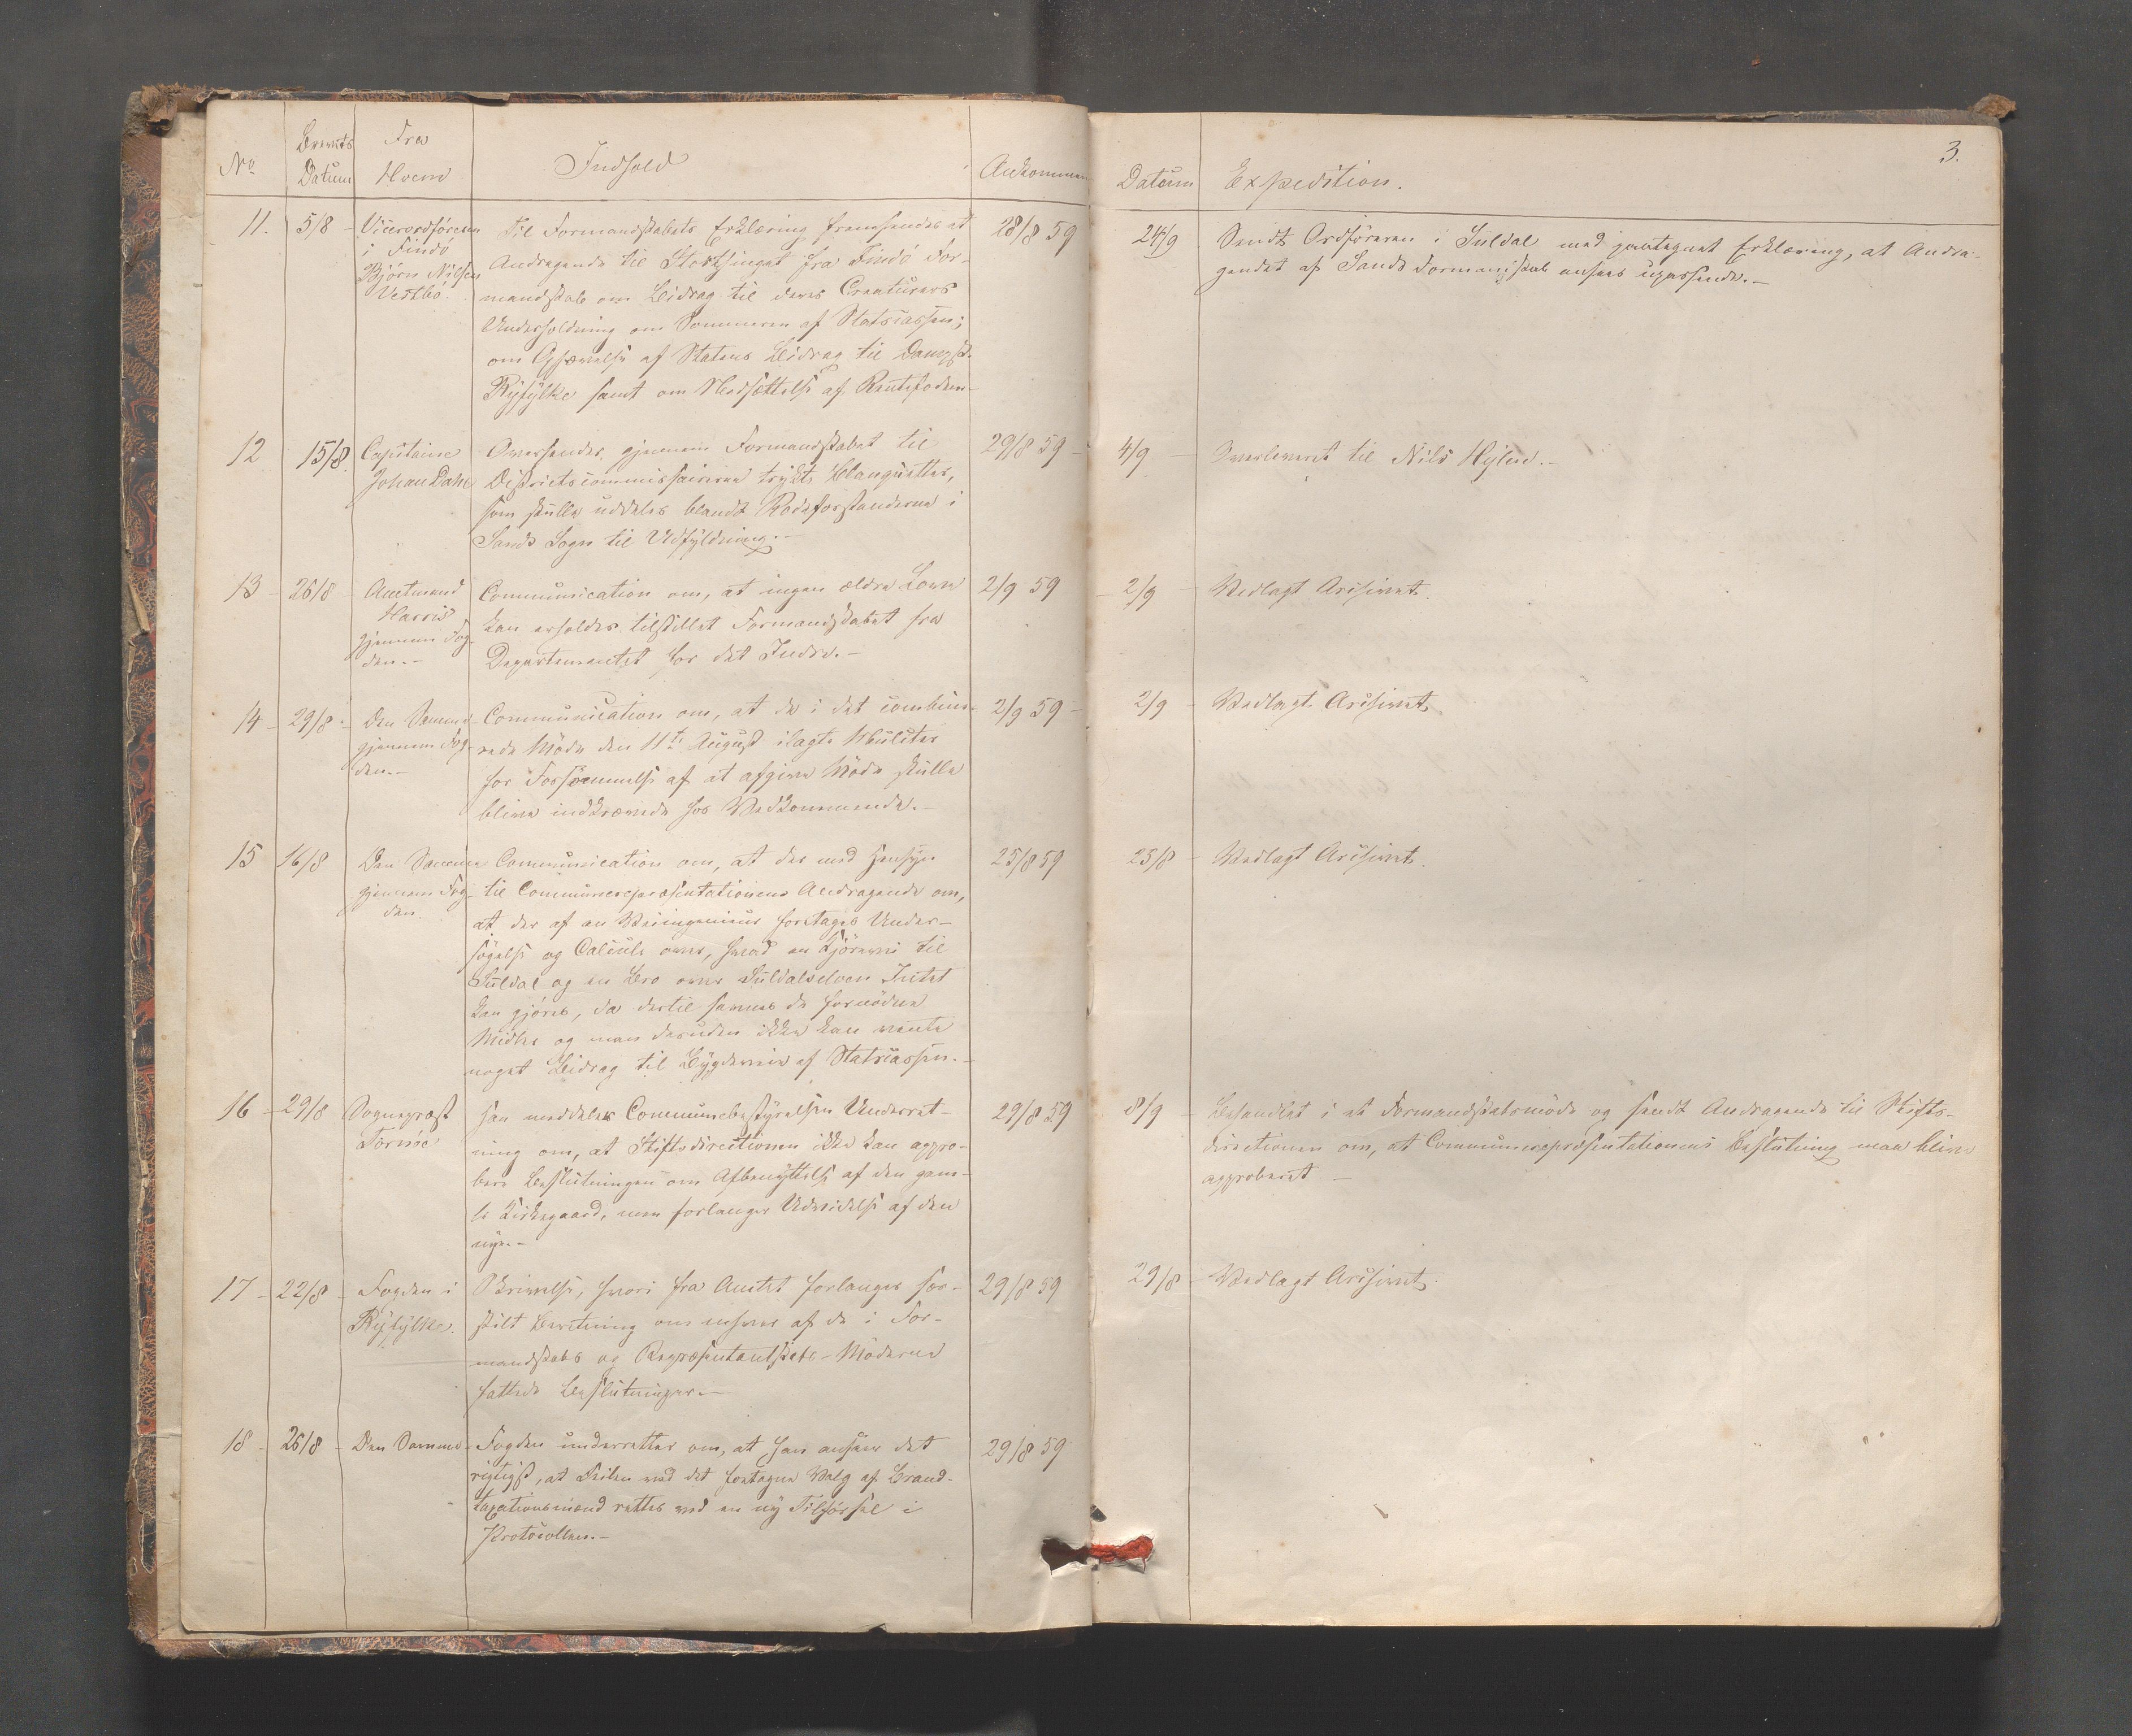 No
Brevets
Datum
Fra
Hvem
Indhold
Ankommen
11.
5/8
Viceordføreren
i Findö
Bjørn Nilsen
Vestbö.
Til Formandskabets Erklæring fremsendes et
Andragende til Storthinget fra Findö For-
mandskab om Bidrag til deres Creaturers
Underholdning om Sommeren af Statscassen;
om Ophævelse af Statens Bidrag til Dampsk.
Ryfylke samt om Nedsættelse af Rentefoden.
28/8 59
12
15/8.
Capitaine
Johan Dahl
Oversender gjennem Formandskabet til
Districtscommissairerne trykte Blanquetter,
som skulle uddeles blandt Rodeforstanderne i
Sands Sogn til Udfyldning.-
29/8 59
13
26/8
Amtmand
Harris
gjennem Fog-
den.-
Communication om, at ingen ældre Love
kan erholdes tilstillet Formandskabet fra
Departementet for det Indre.-
2/9 59
14
29/8
Den Samme
gjennem Fog-
den.-
Communication om, at de i det combine-
rede Möde den 11te August ilagte Mulcter
for Forsømmelse af at afgive Möde skulle
blive inddrævede hos Vedkommende.-
2/9 59
15
16/8
Den Samme
gjennem Fog-
den.
Communication om, at der med Hensyn
til Communerepræsentationens Andragende om,
at der af en Veiingenieur foretages Under-
søgelse og Calcule over, hvad en Kjørevei til
Suldal og en Bro over Suldalselven Intet
kan gjøres, da dertil savnes de fornødne
Midler og man desuden ikke kan vente
noget Bidrag til Bygdeveie af Statscassen.-
25/8 59
16
29/8
Sognepræst
Tornöe
Han meddeler Communebestyrelsen Underret-
ning om, at Stiftsdirectionen ikke kan appro-
bere Beslutningen om Afbenyttelse af den gam-
le Kirkegaard, men forlanger Udvidelse af den
nye.-
29/8 59
17
22/8
Fogden i
Ryfylke.
Skrivelse, hvori fra Amtet forlanges sær-
skilt Beretning om enhver af de i For-
mandskabs og Repræsentantskabs-Möderne
fattede Beslutninger.-
29/8 59
18
26/8
Den Samme
Fogden underretter om, at han anseer det
rigtigst, at Feilen ved det foretagne Valg af Brand-
taxationsmænd rettes ved en ny Tilførsel i
Protocollen.-
29/8 59
3.
Datum
Expedition.
24/9
Sendt Ordføreren i Suldal med paategnet Erklæring, at Andra-
gendet af Sands Formandskab ansees upassende.-
4/9
Overleveret til Nils Hylen.-
2/9
Vedlagt Archivet.
2/9
Vedlagt Archivet.
25/8
Vedlagt Archivet.
8/9
Behandlet i et Formandskabsmøde og sendt Andragende til Stifts-
directionen om, at Communerepræsentationens Beslutning maa blive
approberet -
29/8
Vedlagt Archivet.